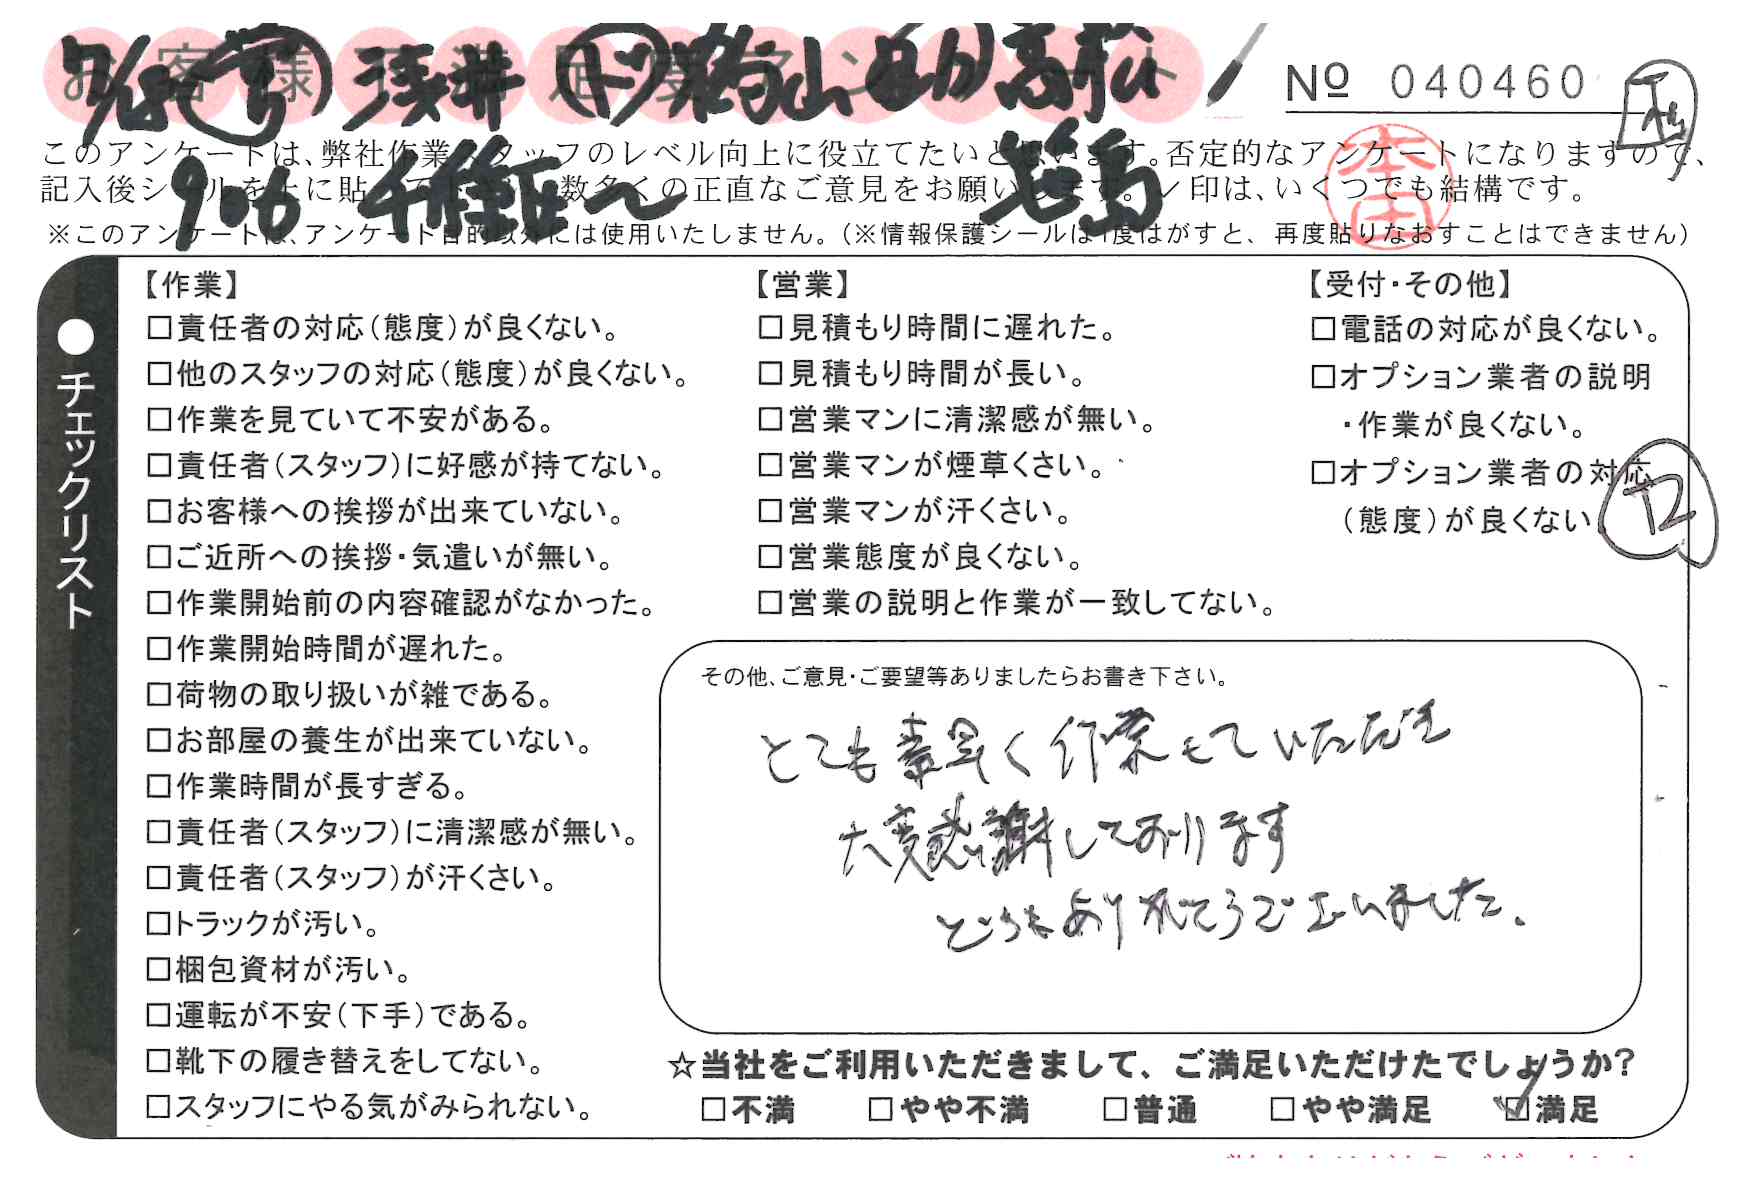 お客様不満足度アンケート
7/18 浅井 高松
№ 040460
このアンケートは、弊社作業スタッフのレベル向上に役立てたいと思います。否定的なアンケートになりますので、
記入後シールを上に貼って下さい。数多くの正直なご意見をお願いします。✓印は、いくつでも結構です。
906
本田
※このアンケートは、アンケート目的以外には使用いたしません。(※情報保護シールは1度はがすと、再度貼りなおすことはできません)
●チェックリスト
【作業】
□責任者の対応(態度)が良くない。
□他のスタッフの対応(態度)が良くない。
□作業を見ていて不安がある。
□責任者(スタッフ)に好感が持てない。
□お客様への挨拶が出来ていない。
□ご近所への挨拶・気遣いが無い。
□作業開始前の内容確認がなかった。
□作業開始時間が遅れた。
□荷物の取り扱いが雑である。
□お部屋の養生が出来ていない。
□作業時間が長すぎる。
□責任者(スタッフ)に清潔感が無い。
□責任者(スタッフ)が汗くさい。
□トラックが汚い。
□梱包資材が汚い。
□運転が不安(下手)である。
□靴下の履き替えをしてない。
□スタッフにやる気がみられない。
【営業】
□見積もり時間に遅れた。
□見積もり時間が長い。
□営業マンに清潔感が無い。
□営業マンが煙草くさい。
□営業マンが汗くさい。
□営業態度が良くない。
□営業の説明と作業が一致してない。
【受付・その他】
□電話の対応が良くない。
□オプション業者の説明
・作業が良くない。
□オプション業者の対応
(態度)が良くない。
その他、ご意見・ご要望等ありましたらお書き下さい。
とても素早く作業をしていただき
大変感謝しております
どうもありがとうございました。
☆当社をご利用いただきまして、ご満足いただけたでしょうか?
□不満 □やや不満 □普通 □やや満足 ☑満足